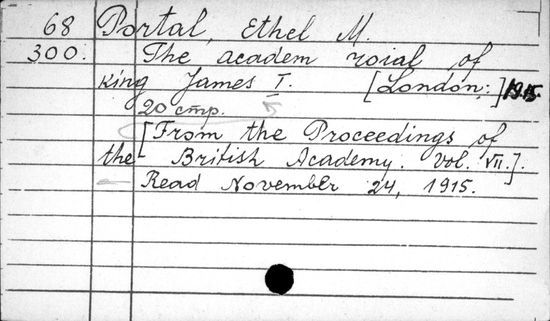 68 Portal, Ethel M.
300. The academ roial of
King James I. [London:] 1915
20 стр.
[From the Proceedings of
the British Academy. Vol. VII].
Read November 24, 1915.